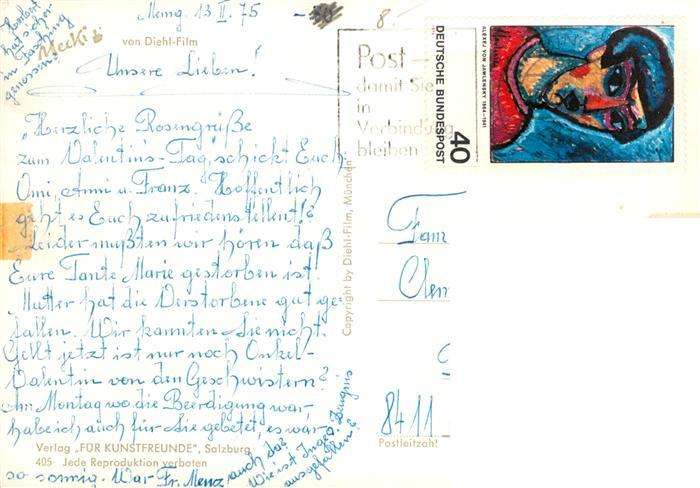 Memg. 13 II. 75
Mecki
von Diehl-Film
Unsere Lieben!
"Herzliche Rosengrüße
zum Valentins-Tag", schickt Euch
Omi, Anni u. Franz. Hoffentlich
geht es Euch zufriedenstellent!?
Leider mußten wir hören daß
Eure Tante Marie gestorben ist.
Mutter hat die Verstorbene gut ge-
fallen. Wir kannten Sie nicht.
Gellt jetzt ist nur noch Onkel-
Valentin von den Geschwistern?
Am Montag wo die Beerdigung war
habe ich auch für Sie gebetet, es war
so sonnig. War Fr. Menz auch da?
Wie ist Inges Zeugnis
ausgefallen?
hat sich er
im Fasching
genossen?
Verlag „FÜR KUNSTFREUNDE", Salzburg
405 Jede Reproduktion verboten
Copyright by Diehl-Film, München
8.-
Post -
damit Sie
in
Verbindung
bleiben
DEUTSCHE BUNDESPOST
40
ALEXEJ VON JAWLENSKY 1864-1941
Fam
Clem
8411
Postleitzahl